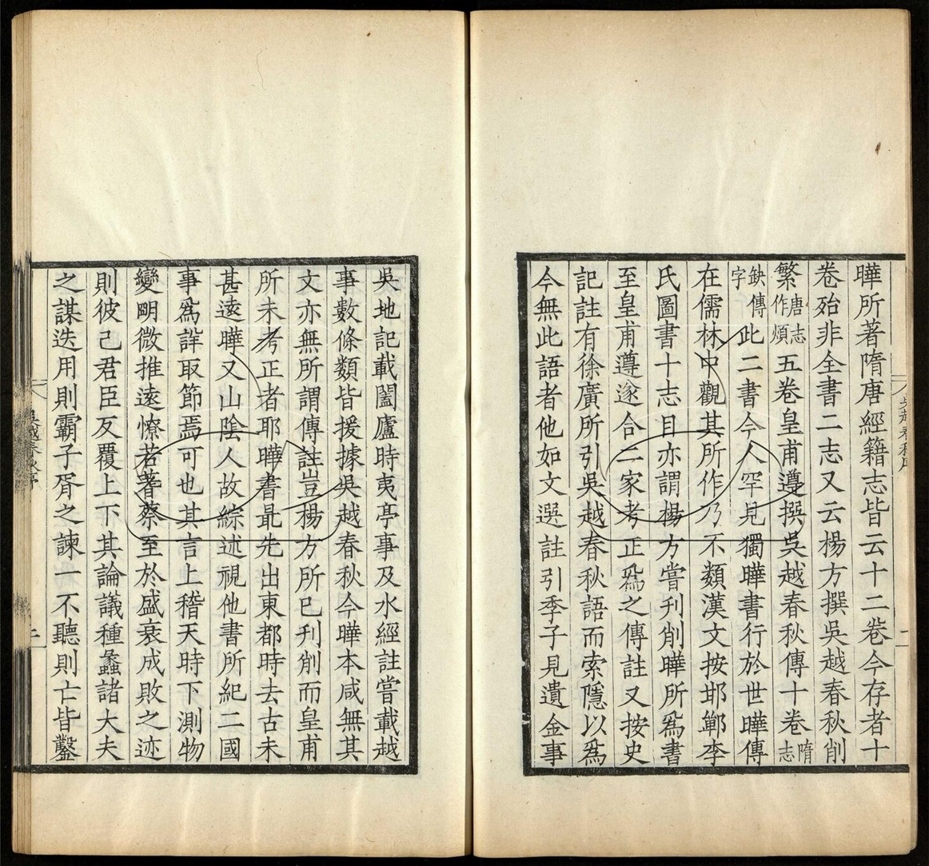 曄所著隋唐經籍志皆云十二卷今存者十
卷殆非全書二志又云楊方撰吳越春秋削
繁唐志作煩五卷皇甫遵撰吳越春秋傳十卷隋志
缺傳字此二書今人罕見獨曄書行於世曄傳
在儒林中觀其所作乃不類漢文按邯鄲李
氏圖書十志目亦謂楊方嘗刋削曄所爲書
至皇甫遵遂合二家考正爲之傳註又按史
記註有徐廣所引吳越春秋語而索隱以爲
今無此語者他如文選註引季子見遺金事
吳地記載闔廬時夷亭事及水經註嘗載越
事數條類皆援據吳越春秋今曄本咸無其
文亦無所謂傳註豈楊方所已刋削而皇甫
所未考正者耶曄書最先出東都時去古未
甚遠曄又山陰人故綜述視他書所紀二國
事爲詳取節焉可也其言上稽天時下測物
變明微推遠憭若蓍蔡至於盛衰成敗之迹
則彼己君臣反覆上下其論議種蠡諸大夫
之謀迭用則霸子胥之諫一不聽則亡皆鑿
吳越春秋序
二